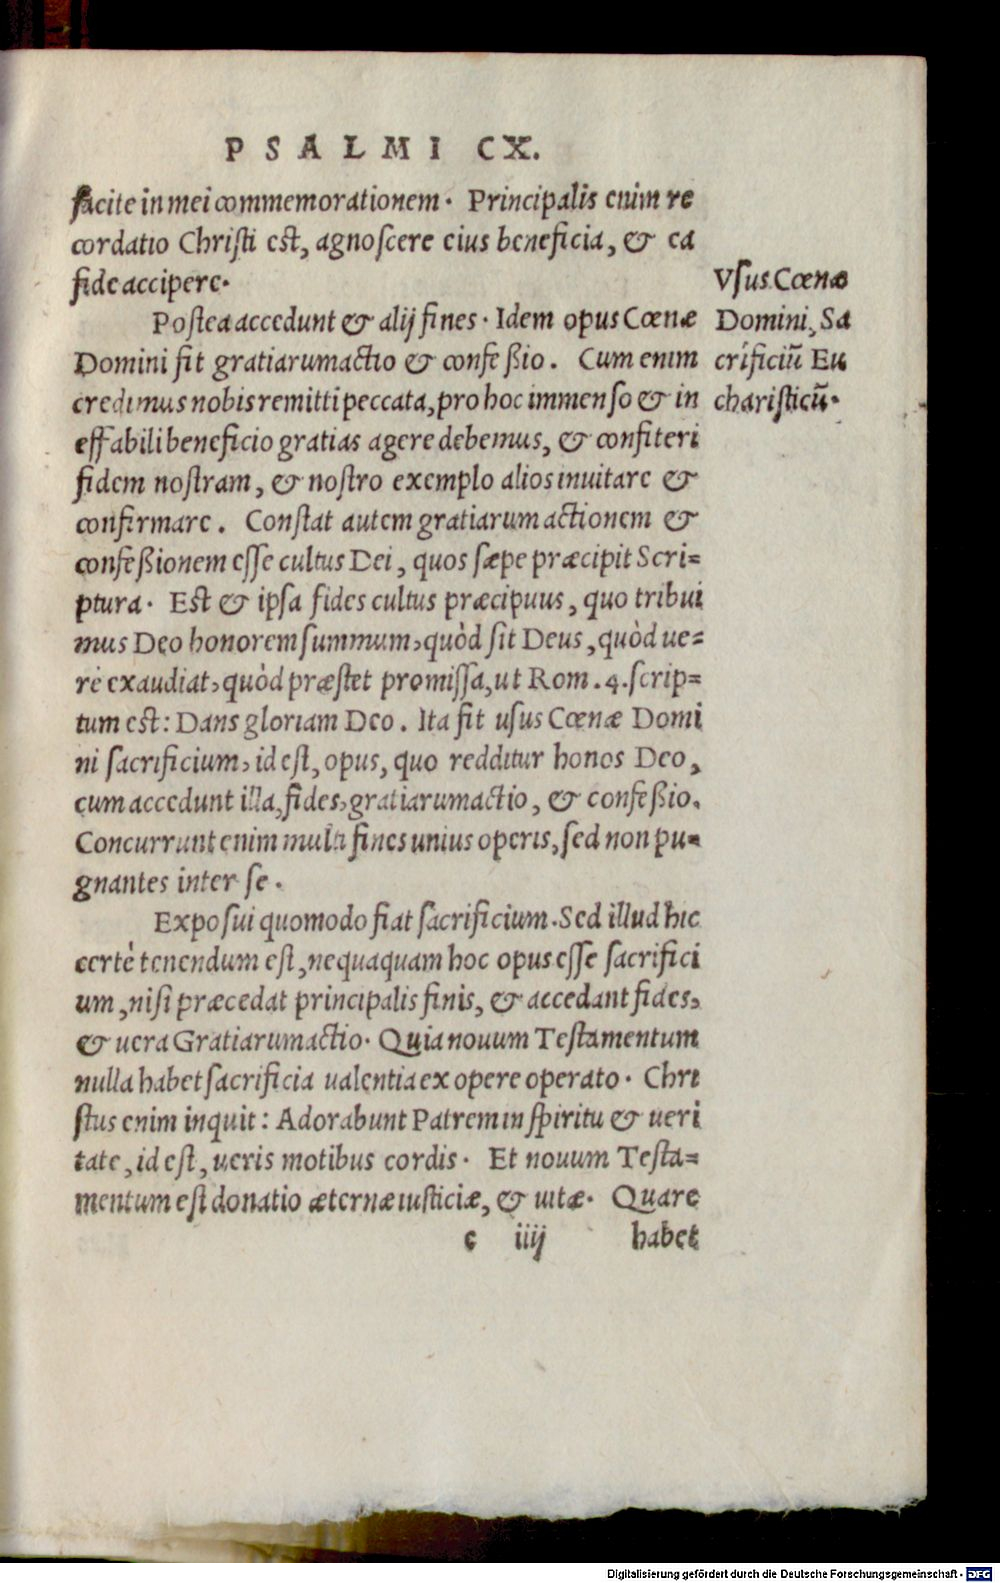 PSALMI CX.
facite in mei commemorationem. Principalis enim re
cordatio Christi est, agnoscere eius beneficia, & ea
fide accipere.
Postea accedunt & alij fines. Idem opus Cœnæ
Domini fit gratiarumactio & confeßio. Cum enim
credimus nobis remitti peccata, pro hoc immenso & in
effabili beneficio gratias agere debemus, & confiteri
fidem nostram, & nostro exemplo alios inuitare &
confirmare. Constat autem gratiarum actionem &
confeßionem esse cultus Dei, quos sæpe præcipit Scri=
ptura. Est & ipsa fides cultus præcipuus, quo tribui
mus Deo honorem summum, quòd sit Deus, quòd ue=
rè exaudiat, quòd præstet promissa, ut Rom. 4. scrip=
tum est: Dans gloriam Deo. Ita fit usus Cœnæ Domi
ni sacrificium, id est, opus, quo redditur honos Deo,
cum accedunt illa, fides, gratiarumactio, & confeßio.
Concurrunt enim multi fines unius operis, sed non pu=
gnantes inter se.
Exposui quomodo fiat sacrificium. Sed illud hic
certè tenendum est, nequaquam hoc opus esse sacrifici
um, nisi præcedat principalis finis, & accedant fides,
& uera Gratiarumactio. Quia nouum Testamentum
nulla habet sacrificia ualentia ex opere operato. Chri
stus enim inquit: Adorabunt Patrem in spiritu & ueri
tate, id est, ueris motibus cordis. Et nouum Testa=
mentum est donatio æternæ iusticiæ, & uitæ. Quare
c iiij habet
Vsus Cœnæ
Domini, Sa
crificiũ Eu
charisticũ.
Digitalisierung gefördert durch die Deutsche Forschungsgemeinschaft - DFG